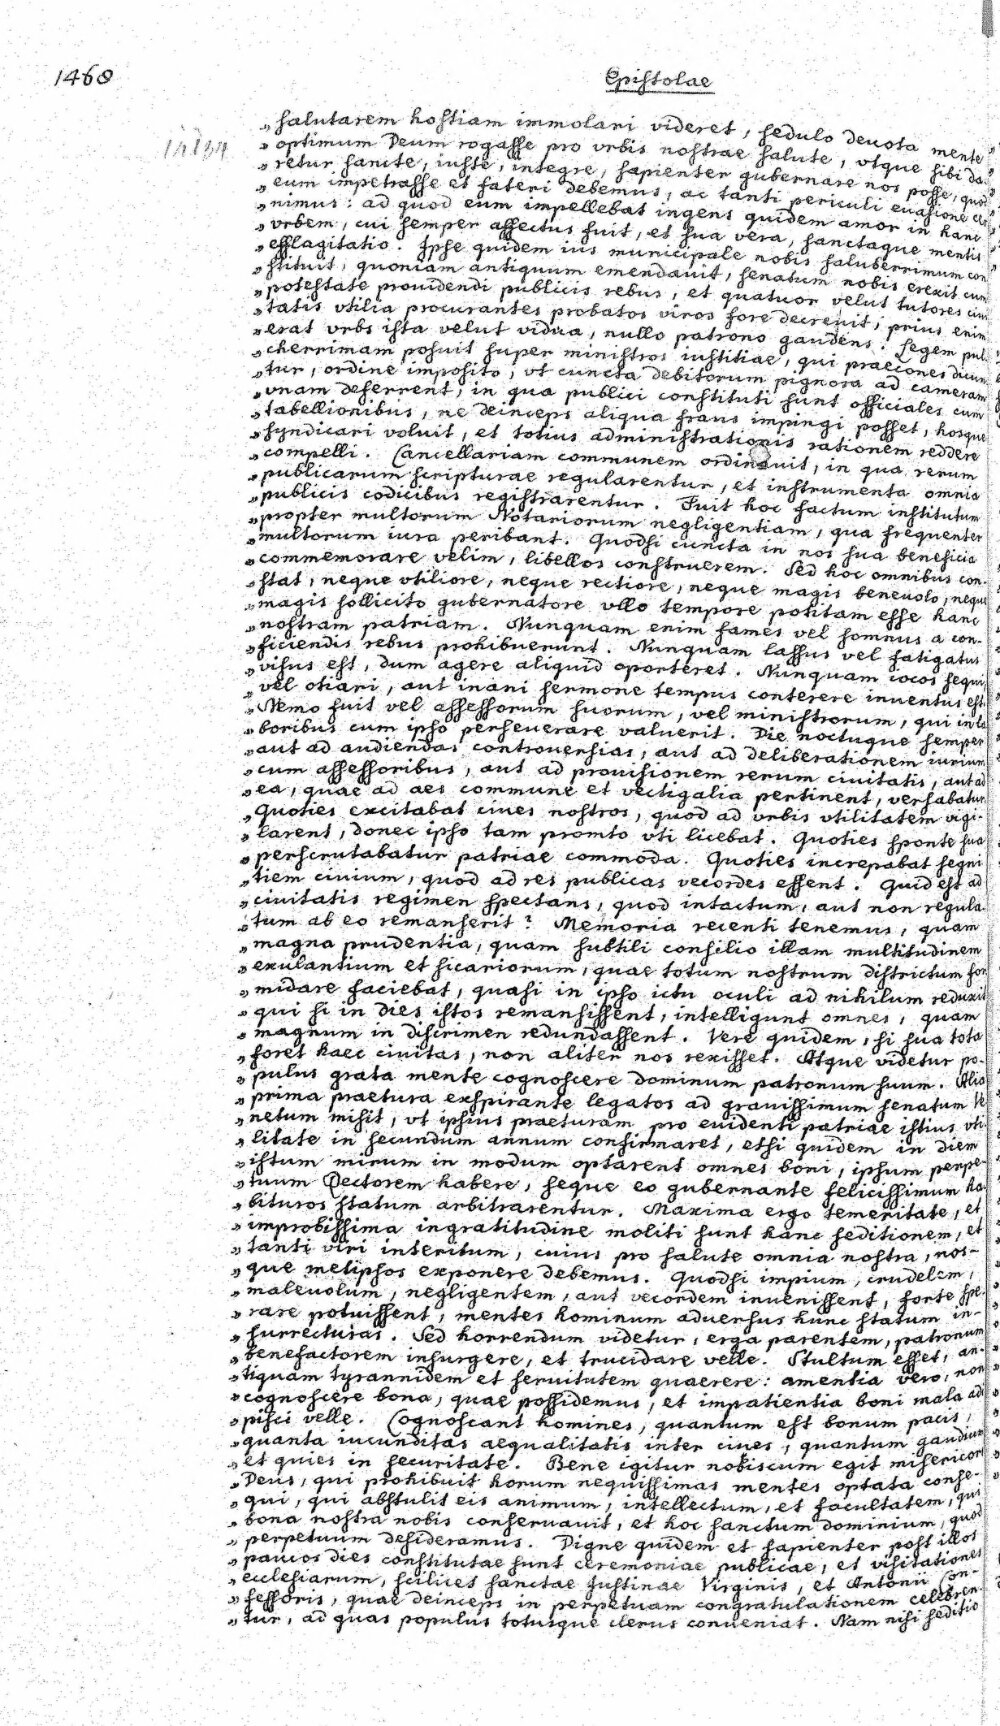 1468
Epistolae
„ salutarem hostiam immolari videret, sedulo deuota mente
„ optimum Deum rogasse pro vrbis nostrae salute, vtque sibi da-
„ retur sancte, iuste, integre, sapienter gubernare nos posse, quod
„ eum impetrasse et fateri debemus, ac tanti periculi euasione
„ nimus: ad quod eum impellebat ingens quidem amor in hanc
„ vrbem, cui semper affectus fuit, et sua vera, sanctaque mentis
„ efflagitatio. Ipse quidem ius municipale nobis saluberrimum con
„ stituit, quoniam antiquum emendauit, senatum nobis erexit cum
„ potestate prouidendi publicis rebus, et quatuor velut tutores ciui
„ tatis vtilia procurantes probatos viros fore decreuit; prius enim
„ erat vrbs ista velut vidua, nullo patrono gaudens. Legem pul
„ cherrimam posuit super ministros iustitiae, qui praecones dicun
„ tur, ordine imposito, vt cuncta debitorum pignora ad cameram
„ vnam deferrent, in qua publici constituti sunt officiales cum
„ tabellionibus, ne deinceps aliqua fraus impingi posset, hosque
„ syndicari voluit, et totius administrationis rationem reddere
„ compelli. Cancellariam communem ordinauit, in qua rerum
„ publicarum scripturae regularentur, et instrumenta omnia
„ publicis codicibus registrarentur. Fuit hoc factum institutum
„ propter multorum Notariorum negligentiam, qua frequenter
„ multorum iura peribant. Quodsi cuncta in nos sua beneficia
„ commemorare velim, libellos construerem. Sed hoc omnibus con-
„ stat, neque vtiliore, neque rectiore, neque magis beneuolo, neque
„ magis sollicito gubernatore vllo tempore potitam esse hanc
„ nostram patriam. Nunquam enim fames vel somnus a con-
„ ficiendis rebus prohibuerunt. Nunquam lassus vel fatigatus
„ visus est, dum agere aliquid oporteret. Nunquam iocos sequi
„ vel otiari, aut inani sermone tempus conterere inuentus est
„ Nemo fuit vel assessorum suorum, vel ministrorum, qui in la
„ boribus cum ipso perseuerare valuerit. Die noctuque semper
„ aut ad audiendas controuersias, aut ad deliberationem iurium
„ cum assessoribus, aut ad prouisionem rerum ciuitatis, aut ad
„ ea, quae ad aes commune et vectigalia pertinent, versabatur
„ Quoties excitabat ciues nostros, quod ad vrbis vtilitatem vigi-
„ larent, donec ipso tam promto vti licebat. Quoties sponte sua
„ perscrutabatur patriae commoda. Quoties increpabat segni
„ tiem ciuium, quod ad res publicas vecordes essent. Quid est ad
„ ciuitatis regimen spectans, quod intactum, aut non regula-
„ tum ab eo remanserit? Memoria recenti tenemus, quam
„ magna prudentia, quam subtili consilio illam multitudinem
„ exulantium et sicariorum, quae totum nostrum districtum for
„ midare faciebat, quasi in ipso ictu oculi ad nihilum reduxit
„ qui si in dies istos remansissent, intelligunt omnes, quam
„ magnum in discrimen redundassent. Vere quidem, si sua tota
„ foret haec ciuitas, non aliter nos rexisset. Atque videtur po-
„ pulus grata mente cognoscere dominum patronum suum. Alio
„ prima praetura exspirante legatos ad grauissimum senatum Ve
„ netum misit, vt ipsius praeturam pro euidenti patriae istius vti
„ litate in secundum annum confirmaret, etsi quidem in diem
„ istum mirum in modum optarent omnes boni, ipsum perpe-
„ tuum Rectorem habere, seque eo gubernante felicissimum ha
„ bituros statum arbitrarentur. Maxima ergo temeritate, et
„ improbissima ingratitudine moliti sunt hanc seditionem, et
„ tanti viri interitum, cuius pro salute omnia nostra, nos-
„ que metipsos exponere debemus. Quodsi impium, crudelem,
„ maleuolum, negligentem, aut vecordem inuenissent, forte spe-
„ rare potuissent, mentes hominum aduersus hunc statum in-
„ surrecturas. Sed horrendum videtur, erga parentem, patronum
„ benefactorem insurgere, et trucidare velle. Stultum esset, an-
„ tiquam tyrannidem et seruitutem quaerere: amentia vero, non
„ cognoscere bona, quae possidemus, et impatientia boni mala adi
„ pisci velle. Cognoscant homines, quantum est bonum pacis,
„ quanta iucunditas aequalitatis inter ciues, quantum gaudium
„ et quies in securitate. Bene igitur nobiscum egit misericors
„ Deus, qui prohibuit horum nequissimas mentes optata conse-
„ qui, qui abstulit eis animum, intellectum, et facultatem, qui
„ bona nostra nobis conseruauit, et hoc sanctum dominium, quod
„ perpetuum desideramus. Digne quidem et sapienter post illos
„ paucos dies constitutae sunt ceremoniae publicae, et visitationes
„ ecclesiarum, scilicet sanctae Iustinae Virginis, et Antonii Con-
„ fessoris, quae deinceps in perpetuam congratulationem celebren-
„ tur, ad quas populus totusque clerus conueniat. Nam nisi seditio